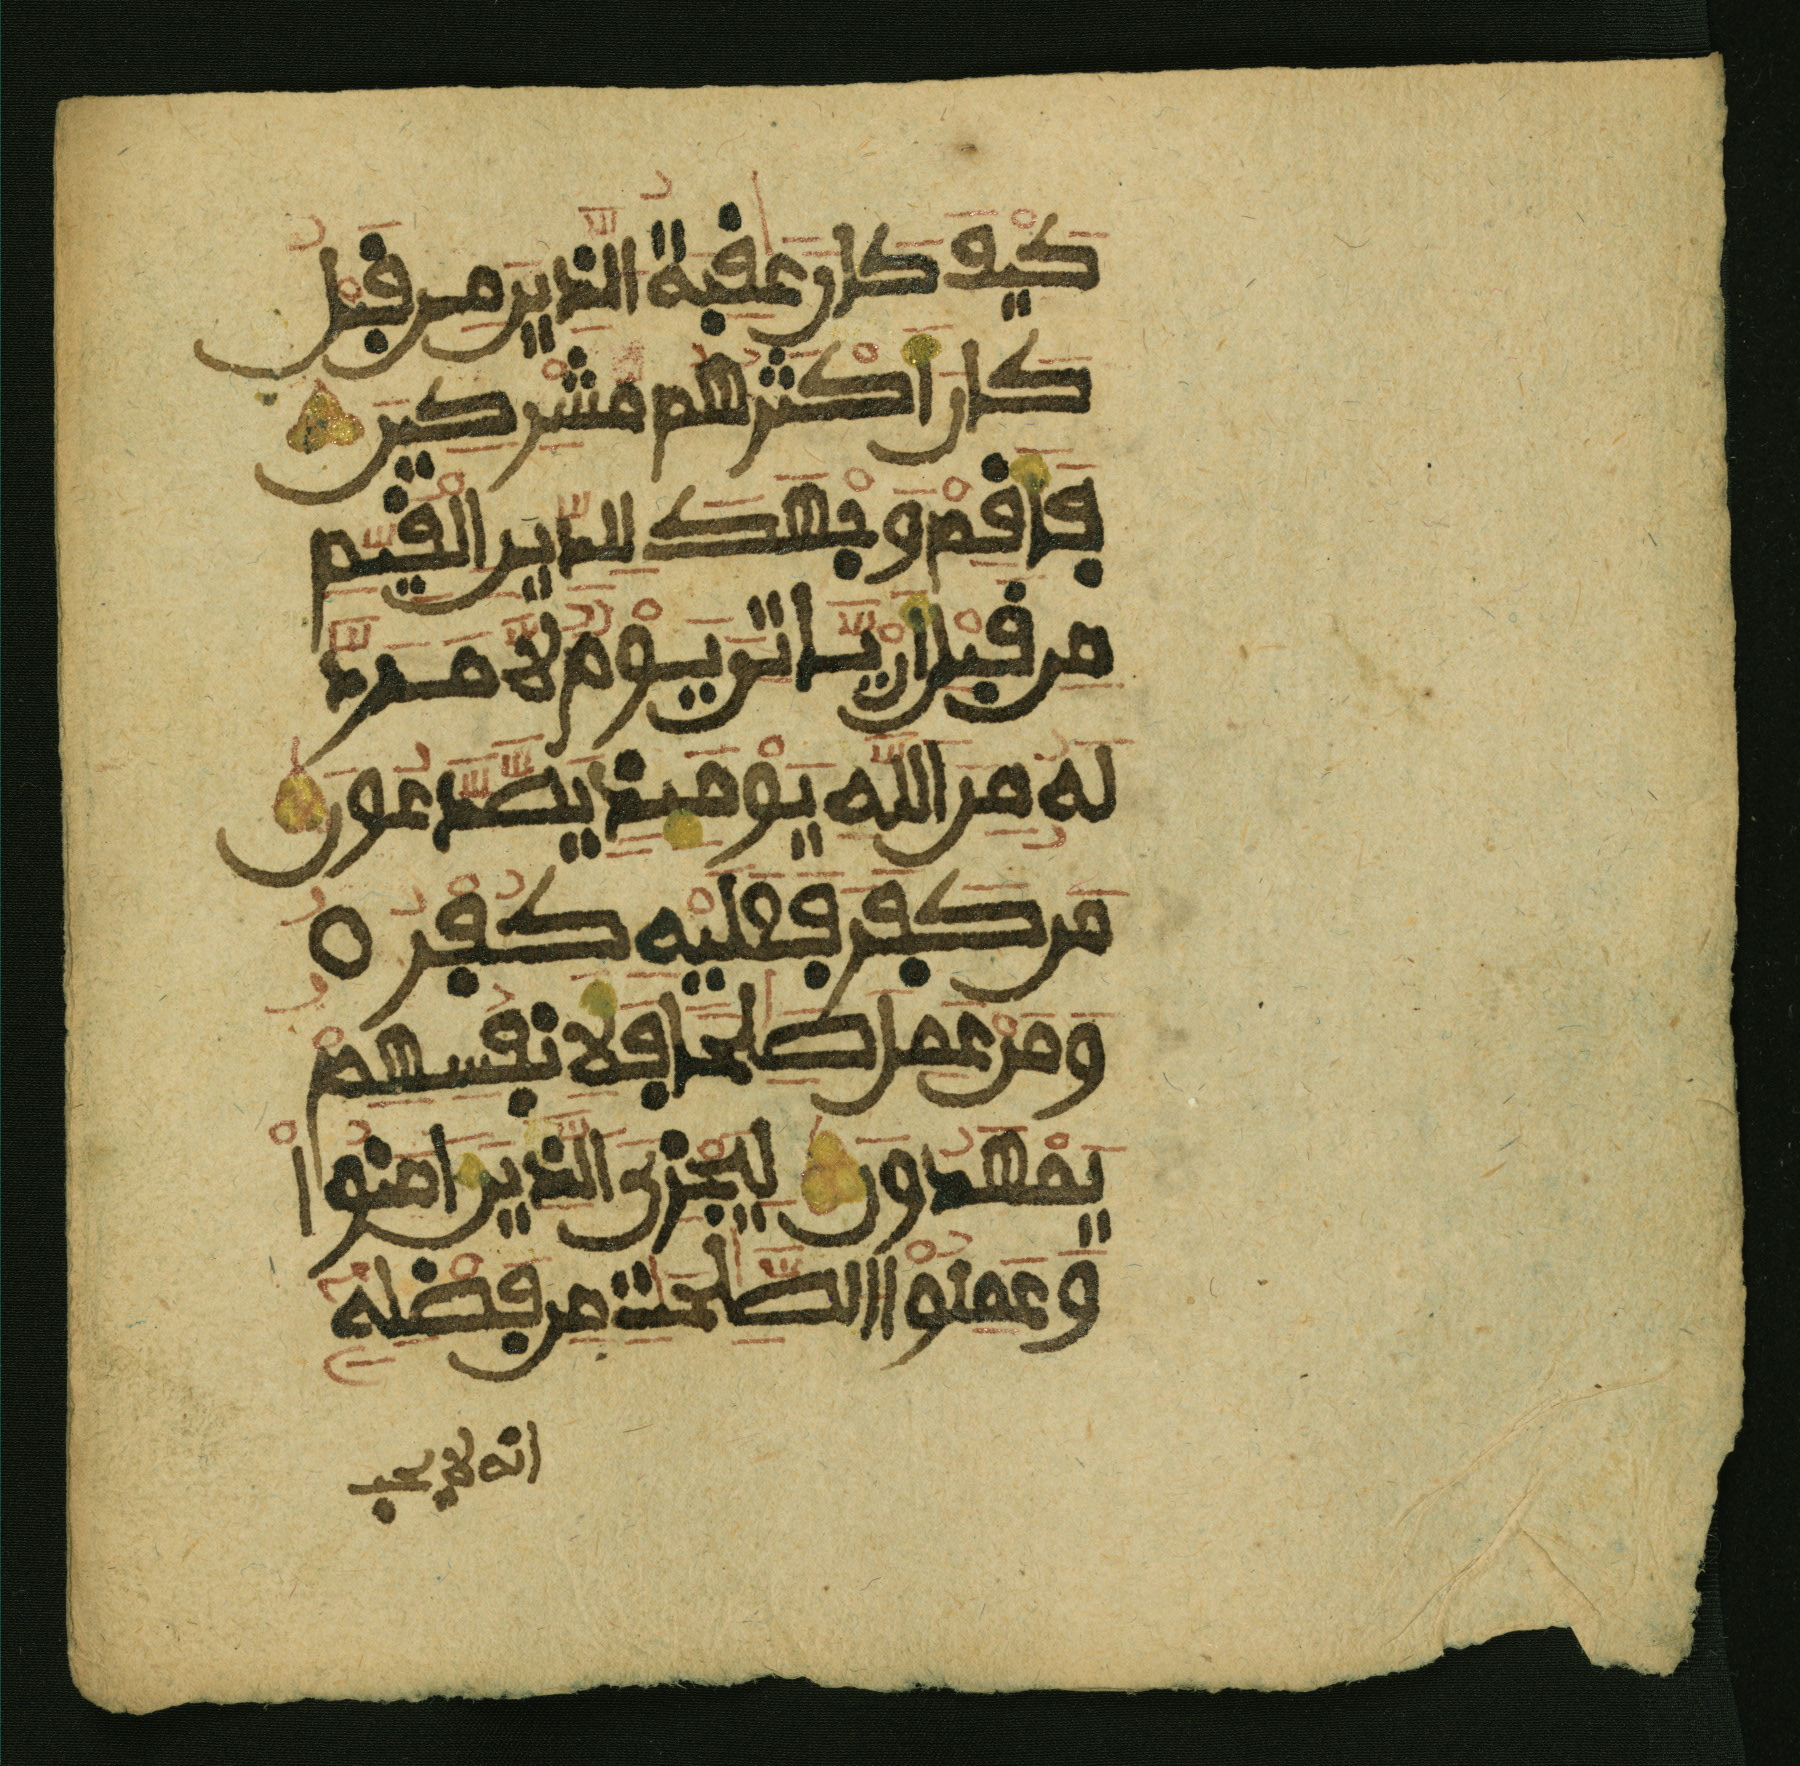 كَيْفَ كَانَ عَٰقِبَةُ الَّذِينَ مِن قَبْلُ
كَانَ أَكْثَرُهُم مُّشْرِكِينَ
فَأَقِمْ وَجْهَكَ لِلدِّينِ الْقَيِّمِ
مِن قَبْلِ أَنْ يَّاتِيَ يَوْمٌ لَّا مَرَدَّ
لَهُ مِنَ اللَّهِ يَوْمَئِذٍ يَصَّدَّعُونَ
مَن كَفَرَ فَعَلَيْهِ كُفْرُهُ
وَمَنْ عَمِلَ صَٰلِحاً فَلِأَنفُسِهِمْ
يَمْهَدُونَ لِيَجْزِيَ الَّذِينَ ءَامَنُواْ
وَعَمِلُواْ الصَّٰلِحَٰتِ مِن فَضْلِهِ
انه لا يحب